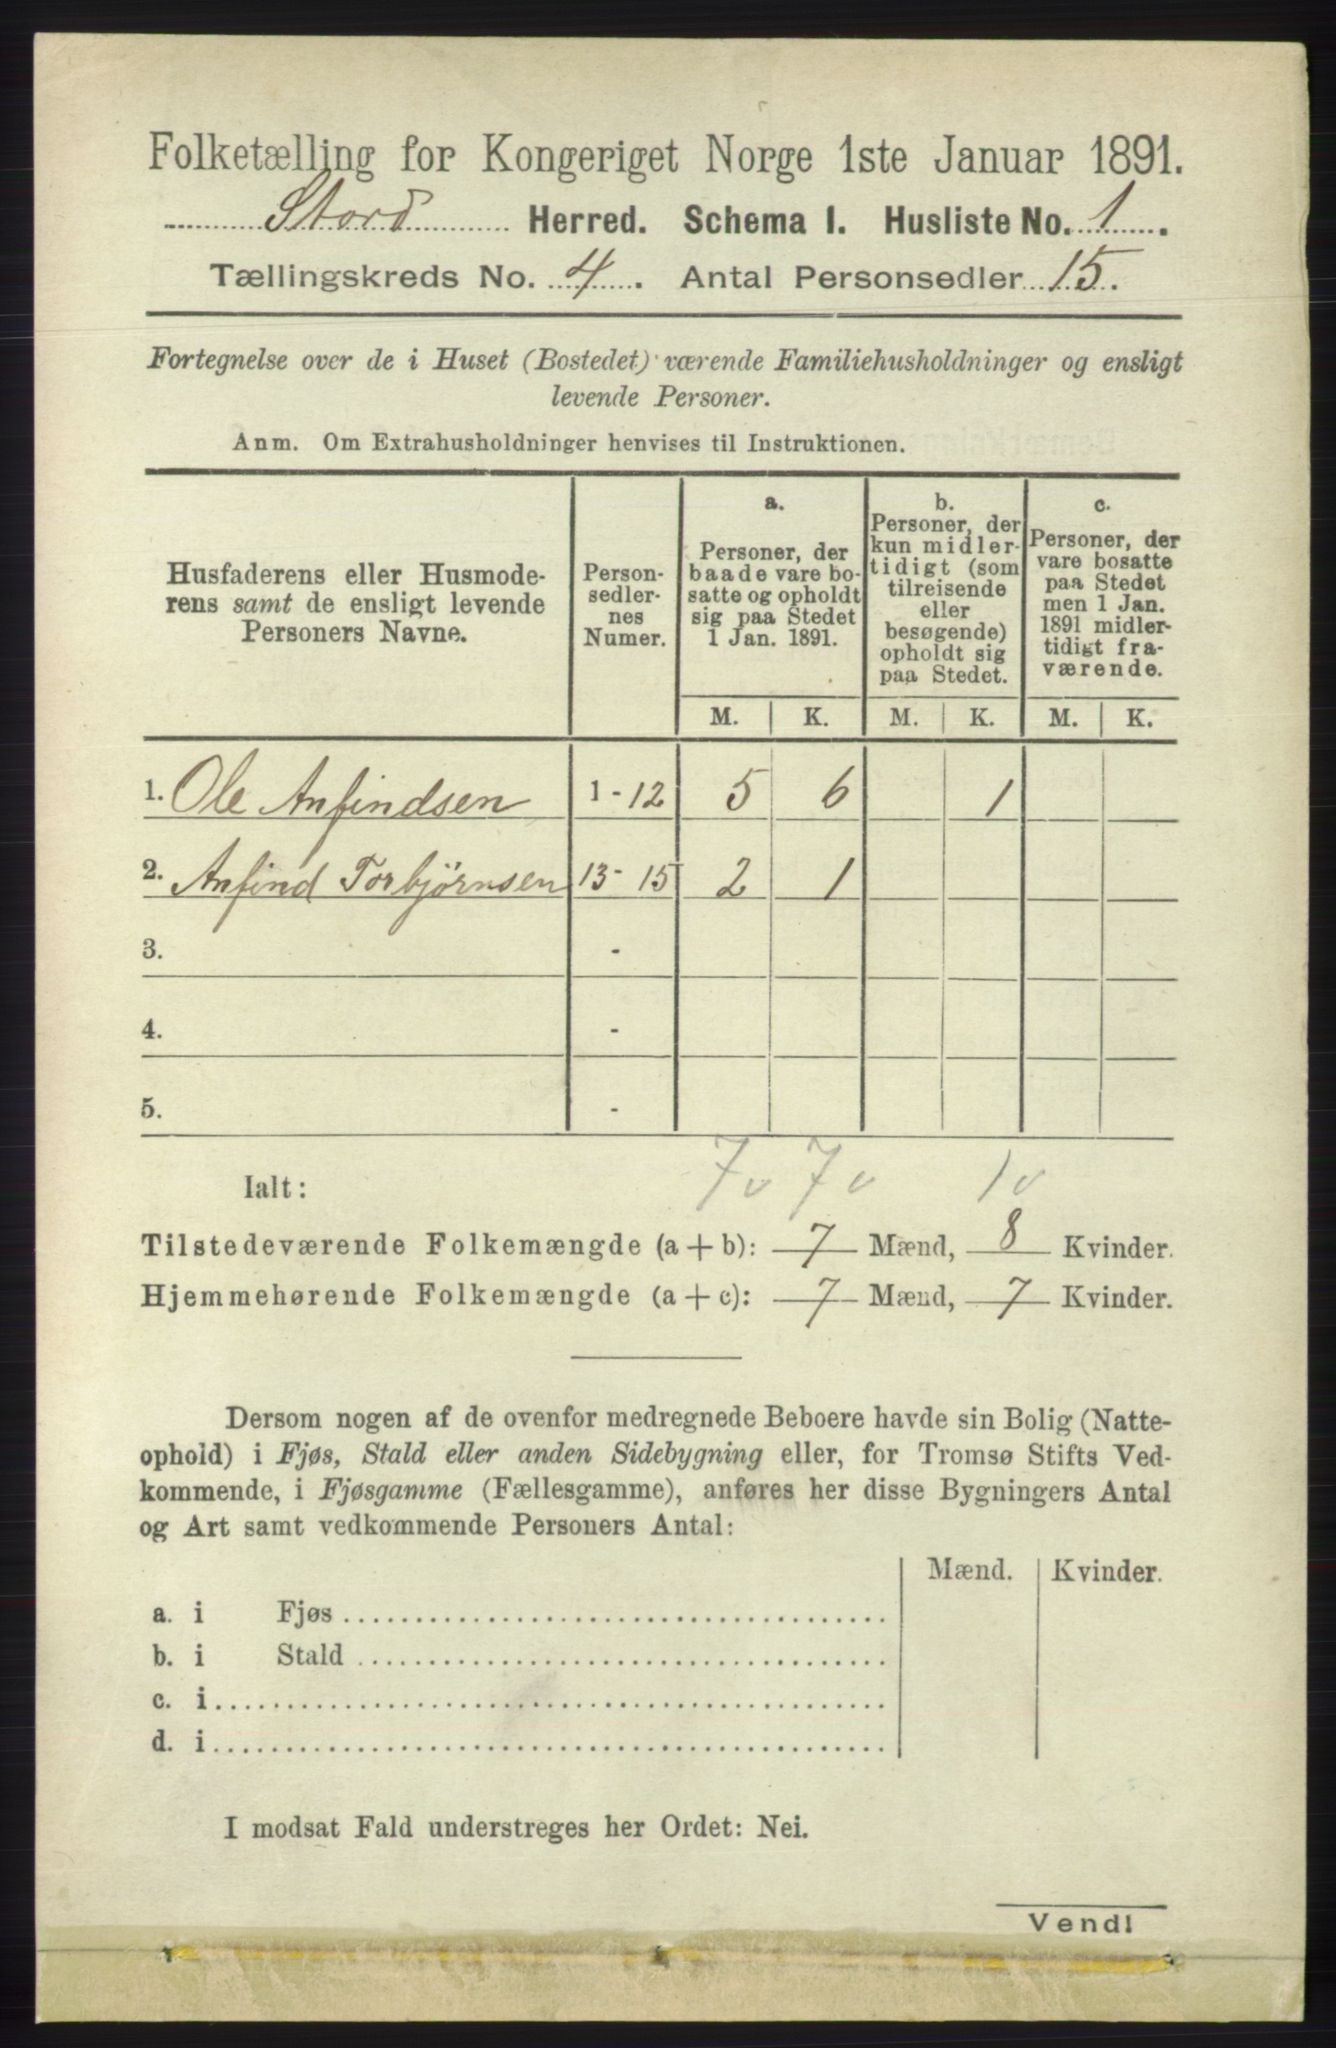 Folketælling for Kongeriget Norge 1ste Januar 1891.
Stord Herred. Schema I. Husliste No. 1.
Tællingskreds No. 4. Antal Personsedler 15.
Fortegnelse over de i Huset (Bostedet) værende Familiehusholdninger og ensligt
levende Personer.
Anm. Om Extrahusholdninger henvises til Instruktionen.
Husfaderens eller Husmode-
rens samt de ensligt levende
Personers Navne.
Person-
sedler-
nes
Numer.
a.
Personer, der
baade vare bo-
satte og opholdt
sig paa Stedet
1 Jan. 1891.
b.
Personer, der
kun midler-
tidigt (som
tilreisende
eller
besøgende)
opholdt sig
paa Stedet.
c.
Personer, der
vare bosatte
paa Stedet
men 1 Jan.
1891 midler-
tidigt fra-
værende.
M. K. M. K. M. K.
1. Ole Anfindsen 1-12 5 6 1
2. Anfind Torbjørnsen 13-15 2 1
3. -
4. -
5. -
7v 7v 1v
Ialt:
Tilstedeværende Folkemængde (a+b): 7 Mænd, 8 Kvinder.
Hjemmehørende Folkemængde (a+c): 7 Mænd, 7 Kvinder.
Dersom nogen af de ovenfor medregnede Beboere havde sin Bolig (Natte-
ophold) i Fjøs, Stald eller anden Sidebygning eller, for Tromsø Stifts Ved-
kommende, i Fjøsgamme (Fællesgamme), anføres her disse Bygningers Antal
og Art samt vedkommende Personers Antal:
Mænd. Kvinder.
a. i Fjøs
b. i Stald
c. i
d. i
I modsat Fald understreges her Ordet: Nei.
Vend!